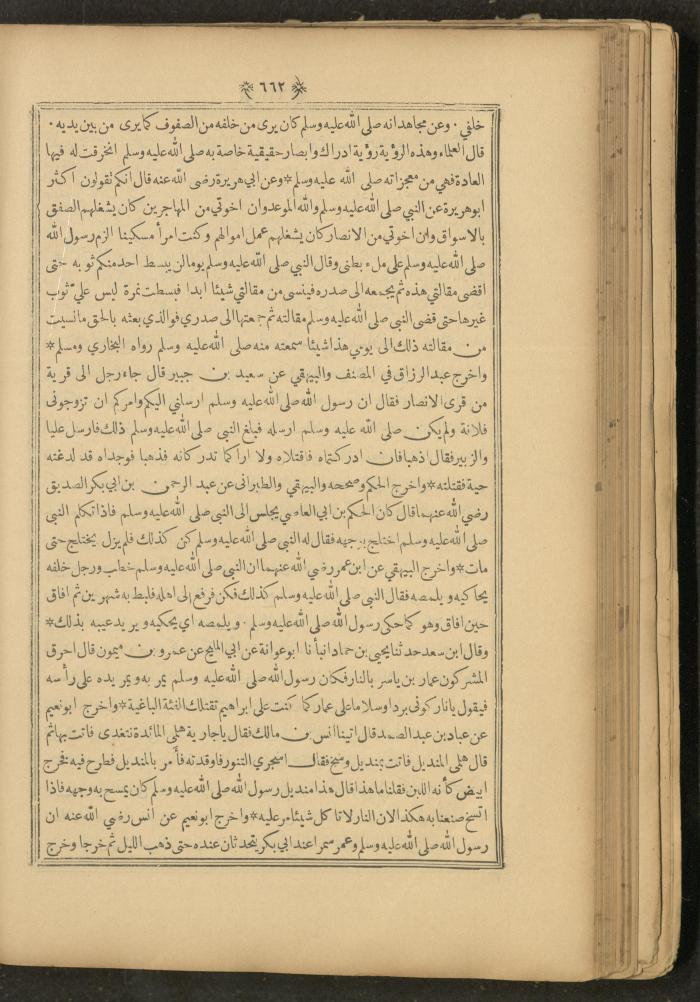 ٦٦٢
خلفي . وعن مجاهد انه صلى الله عليه وسلم كان يرى من خلفه من الصفوف كما يرى من بين يديه .
قال العلماء وهذه الرؤية رؤية ادراك وابصار حقيقية خاصة به صلى الله عليه وسلم انخرقت له فيها
العادة فهي من معجزاته صلى الله عليه وسلم * وعن ابي هريرة رضى الله عنه قال انكم تقولون اكثر
ابو هريرة عن النبي صلى الله عليه وسلم والله الموعد وان اخوتي من المهاجرين كان يشغلهم الصفق
بالاسواق وان اخوتي من الانصار كان يشغلهم عمل اموالهم وكنت امرأ مسكينا الزم رسول الله
صلى الله عليه وسلم على ملء بطنى وقال النبي صلى الله عليه وسلم يوما لن يبسط احد منكم ثوبه حتى
اقضى مقالتي هذه ثم يجمعه الى صدره فينسى من مقالتي شيئا ابدا فبسطت نمرة ليس عليّ ثوب
غيرها حتى قضى النبى صلى الله عليه وسلم مقالته ثم جمعتها الى صدري فوالذي بعثه بالحق ما نسيت
من مقالته ذلك الى يومي هذا شيئا سمعته منه صلى الله عليه وسلم رواه البخاري ومسلم *
واخرج عبد الرزاق في المصنف والبيهقي عن سعيد بن جبير قال جاء رجل الى قرية
من قرى الانصار فقال ان رسول الله صلى الله عليه وسلم ارسلني اليكم وامركم ان تزوجونى
فلانة ولم يكن صلى الله عليه وسلم ارسله فبلغ النبى صلى الله عليه وسلم ذلك فارسل عليا
والزبير فقال اذهبا فان ادركتماه فاقتلاه ولا اراكما تدركانه فذهبا فوجداه قد لدغته
حية فقتلته * واخرج الحكم وصححه والبيهقي والطبرانى عن عبد الرحمن بن ابي بكر الصديق
رضي الله عنهما قال كان الحكم بن ابي العاصي يجلس الى النبى صلى الله عليه وسلم فاذا تكلم النبي
صلى الله عليه وسلم اختلج بوجهه فقال له النبى صلى الله عليه وسلم كن كذلك فلم يزل يختلج حتى
مات * واخرج البيهقي عن ابن عمر رضي الله عنهما ان النبي صلى الله عليه وسلم خطب ورجل خلفه
يحاكيه ويلمصه فقال النبى صلى الله عليه وسلم كذلك فكن فرفع الى اهله فلبط به شهرين ثم افاق
حين افاق وهو كما حكى رسول الله صلى الله عليه وسلم . ويلمصه اي يحكيه ويريد عيبه بذلك *
وقال ابن سعد حدثنا يحيى بن حماد انبأنا ابو عوانة عن ابي المليح عن عمرو بن ميمون قال احرق
المشركون عمار بن ياسر بالنار فكان رسول الله صلى الله عليه وسلم يمر به ويمر يده على رأسه
فيقول يا نار كونى بردا وسلاما على عمار كما كنت على ابراهيم تقتلك الفئة الباغية * واخرج ابو نعيم
عن عباد بن عبد الصمد قال اتينا انس بن مالك فقال يا جارية هلمى المائدة نتغدى فاتت بها ثم
قال هلى المنديل فاتت بمنديل وسخ فقال اسجري التنور فاوقدته فأمر بالمنديل فطرح فيه فخرج
ابيض كأنه اللبن فقلنا ما هذا قال هذا منديل رسول الله صلى الله عليه وسلم كان يمسح به وجهه فاذا
اتسخ صنعنا به هكذا لان النار لا تاكل شيئا مر عليه * واخرج ابو نعيم عن انس رضي الله عنه ان
رسول الله صلى الله عليه وسلم وعمر سمرا عند ابي بكر يتحدثان عنده حتى ذهب الليل ثم خرجا وخرج